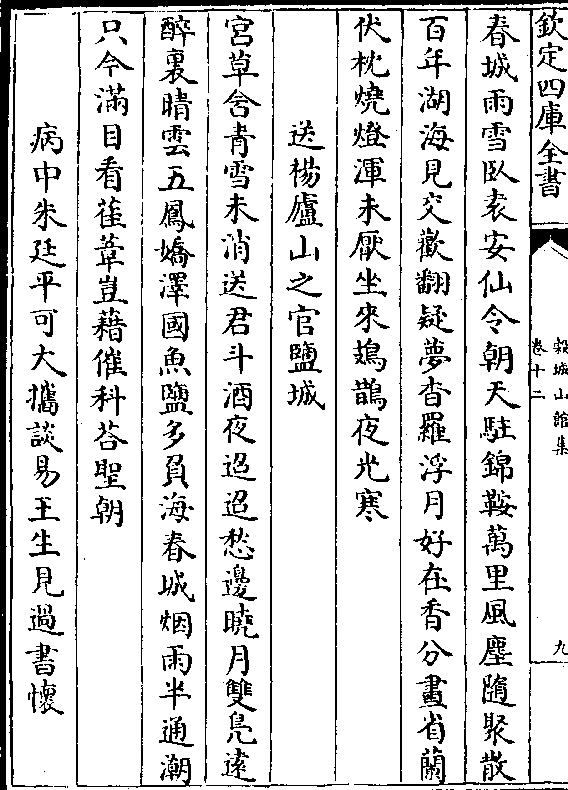 欽定四庫全書
穀城山館集
卷十二
九
春城雨雪臥袁安仙令朝天駐錦鞍萬里風塵隨聚散
百年湖海見交歡翻疑夢杳羅浮月好在香分畫省蘭
伏枕燒燈渾未厭坐來鳷鵲夜光寒
送楊廬山之官鹽城
宮草含青雪未消送君斗酒夜迢迢愁邊曉月雙鳧遠
醉裏晴雲五鳳嬌澤國魚鹽多負海春城烟雨半通潮
只今滿目看萑葦豈藉催科荅聖朝
病中朱廷平可大攜談易王生見過書懷